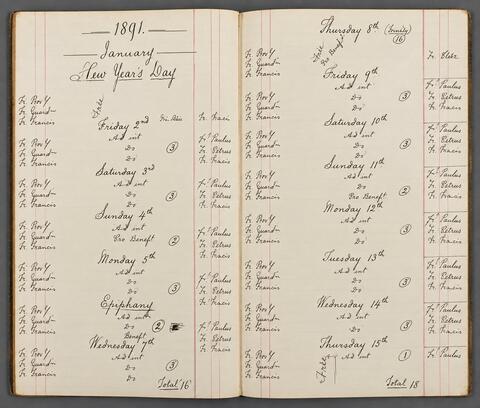 1891.
January
New Year's Day
Fr. Prov'l
Fr. Guard
Fr. Francis
Free
Friday 2nd
Fr. Prov'l
Fr. Guard
Fr. Francis
Ad int
Do
Do
3
Fr. Paulus
Fr. Petrus
Fr. Fracis
Saturday 3rd
Fr. Prov'l
Fr. Guard
Fr. Francis
Ad int
Do
Do
3
Fr. Paulus
Fr. Petrus
Fr. Fracis
Sunday 4th
Fr. Prov'l
Fr. Guard
Fr. Francis
Ad int
Pro Beneft
2
Fr. Paulus
Fr. Petrus
Fr. Fracis
Monday 5th
Fr. Prov'l
Fr. Guard
Fr. Francis
Ad int
Do
Do
3
Fr. Paulus
Fr. Petrus
Fr. Fracis
Epiphany
Fr. Prov'l
Fr. Guard
Fr. Francis
Ad int
Do
Beneft
2
Fr. Paulus
Fr. Petrus
Fr. Fracis
Wednesday 7th
Fr. Prov'l
Fr. Guard
Fr. Francis
Ad int
Do
Do
3
Total 16
Thursday 8th (Trinity)
16
Fr. Prov'l
Fr. Guard
Fr. Francis
Free
Pro Benefit
Friday 9th
Fr. Prov'l
Fr. Guard
Fr. Francis
Ad int
Do
Do
3
Fr. Paulus
Fr. Petrus
Fr. Fracis
Saturday 10th
Fr. Prov'l
Fr. Guard
Fr. Francis
Ad int
Do
Do
3
Fr. Paulus
Fr. Petrus
Fr. Fracis
Sunday 11th
Fr. Prov'l
Fr. Guard
Fr. Francis
Ad int
Do
Pro Benef
2
Fr. Paulus
Fr. Petrus
Fr. Fracis
Monday 12th
Fr. Prov'l
Fr. Guard
Fr. Francis
Ad int
Do
Do
3
Fr. Paulus
Fr. Petrus
Fr. Fracis
Tuesday 13th
Fr. Prov'l
Fr. Guard
Fr. Francis
Ad int
Do
Do
3
Fr. Paulus
Fr. Petrus
Fr. Fracis
Wednesday 14th
Fr. Prov'l
Fr. Guard
Fr. Francis
Ad int
Do
Do
3
Fr. Paulus
Fr. Petrus
Fr. Fracis
Thursday 15th
Fr. Prov'l
Fr. Guard
Fr. Francis
Ad int
Free
1
Fr. Paulus
Total 18